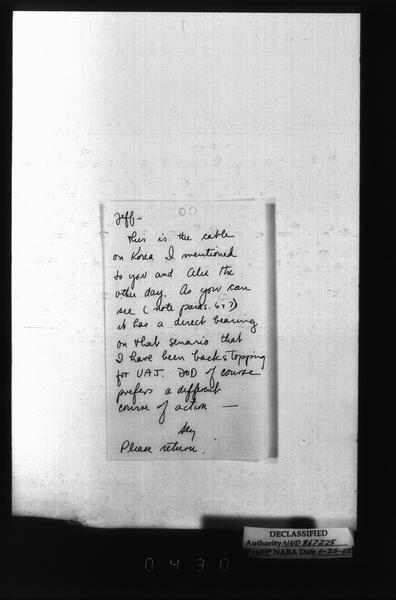 Jeff-
This is the cable
on Korea I mentioned
to you and Alec the
other day. As you can
see (note paras. 6+7)
it has a direct bearing
on that senario that
I have been backstopping
for UAJ. DOD of course
prefers a different
course of action —
Please return.
DECLASSIFIED
Authority NND 867225
NARA Date 6-20-02
0430